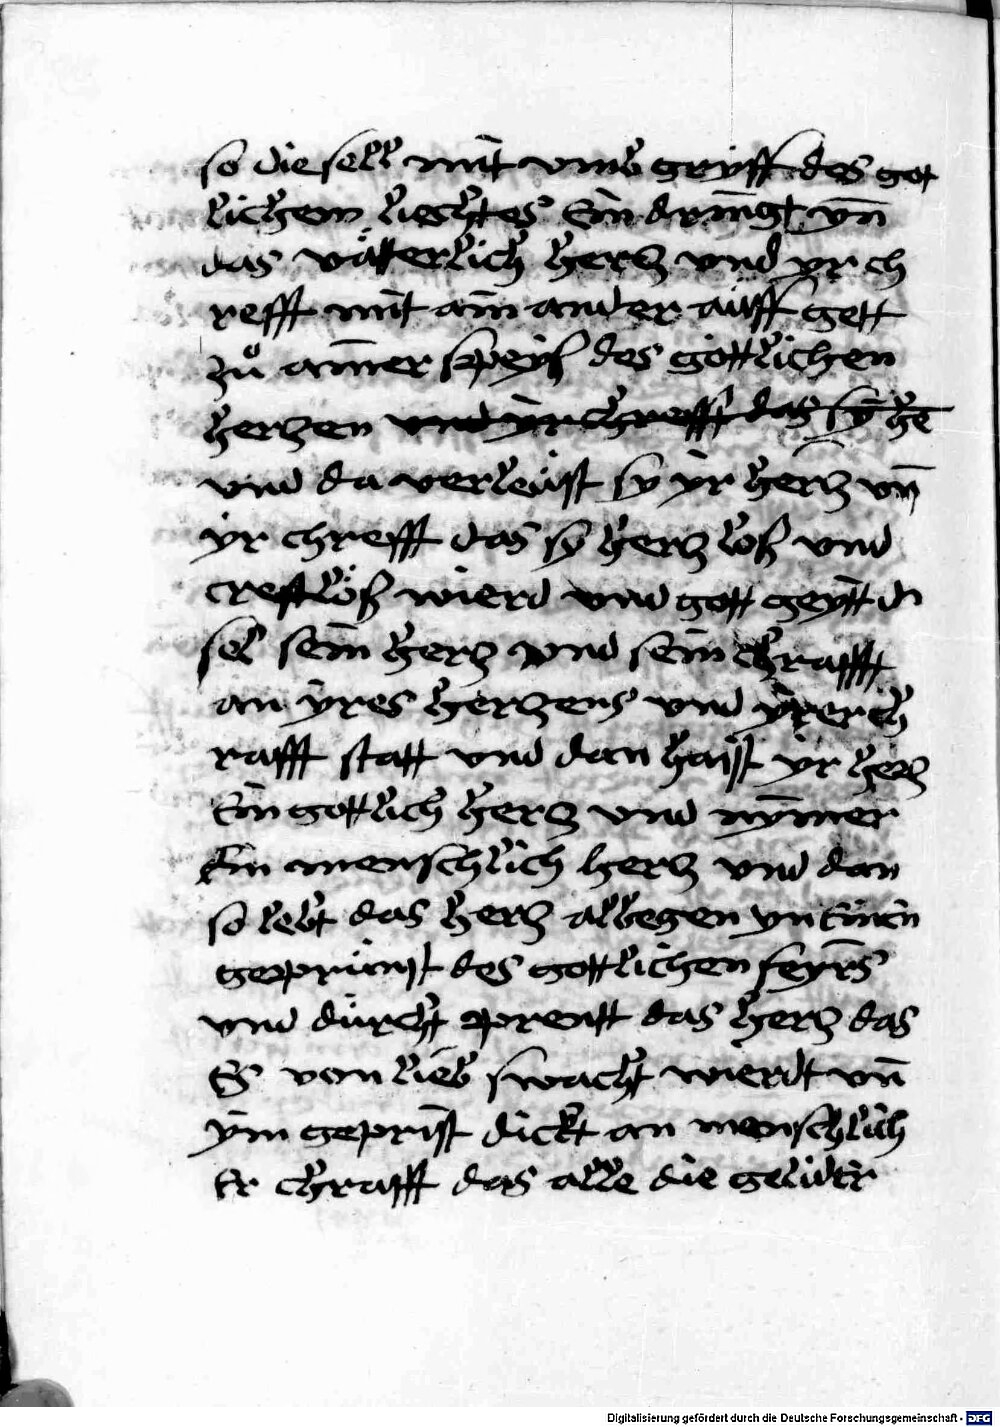 so die sell mit vmb gryff des got
lichen liechtes Ein dringt yn̄
das väterlich hertz vnd yr ch
refft mit aim ander auff gett
zů aīner speys des göttlichen
hertzen vnd yr chrefft das sy he
vnd da verleüst sy yr hertz vn̄
yr chrefft das sy hertz loß vnd
creftlöß wierd vnd gott geytt d
sel sein hertz vnd sein chrafft
an yres hertzens vnd yrer ch
rafft statt vnd dan haist yr hertz
Ein gottlich hertz vnd nym̄er
Ein menschlich hertz vnd dan
so lebt das hertz albegen yn Einēn
geprünst des gottlichen feyrs
vnd dürcht prentt das hertz das
Es von lieb swacht wierdt vn̄
ym geprist dickt an menschlich
Er chrafft das alle die gelider
Digitalisierung gefördert durch die Deutsche Forschungsgemeinschaft - DFG